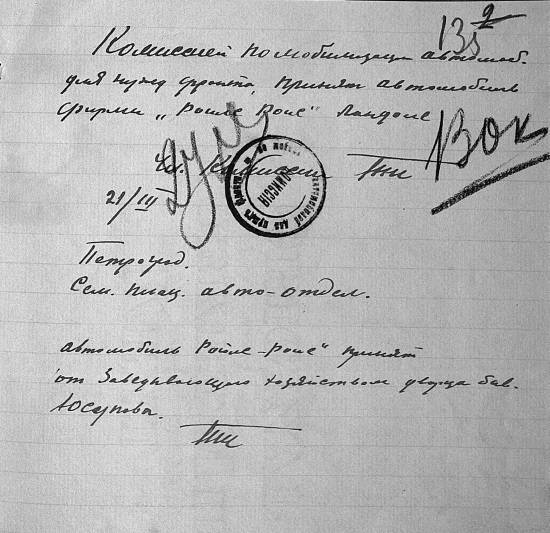 135
2
Комиссией по мобилизации автомоб.
для нужд фронта, принят автомобиль
фирмы „Ройлс Роис" Ландоле
Чл. Комиссии
21/III
Вок
КОМИССІЯ
Петроград.
Сем. плац. авто-отдел.
автомобиль Ройлс-Роис" принят
от Заведывающего хозяйством дворца бывш.
Юсупова.